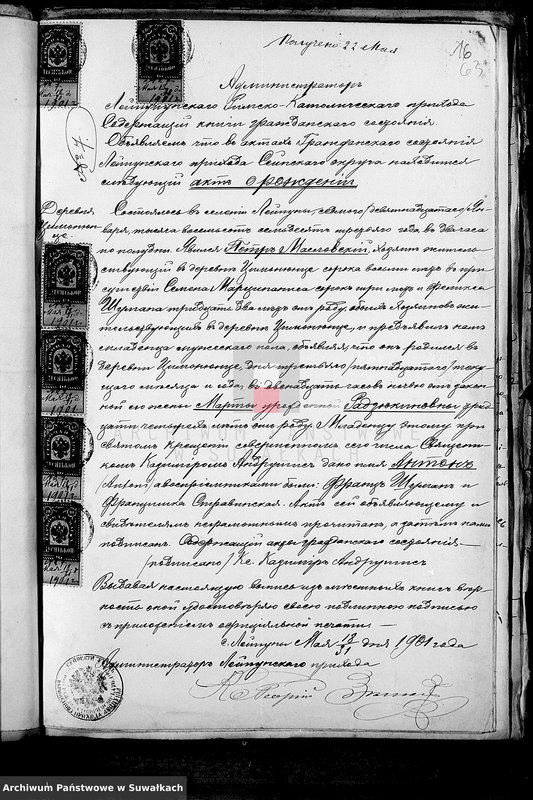 Получено 22 Мая
16
63
Администраторъ
Лейпунскаго Римско-Католическаго прихода
Содержащій книги гражданскаго состоянія
Объявляемъ что въ актахъ Гражданскаго состоянія
Лейпунскаго прихода Сейнскаго округа находится
слѣдующій актъ о рожденіи
Деревня
Состоялось въ селеніи Лейпуны, седьмого /девятнадцатаго/ Ян-
варя, тысяча восемьсотъ семьдесятъ третьяго года въ два часа
по полудни. Явился Петръ Масловскій, хозяинъ житель-
ствующій въ деревнѣ сорока восьми лѣтъ въ при-
сутствіи Семена сорока трехъ лѣтъ и Феликса
Шумана тридцати два лѣтъ отъ роду, обоихъ хозяиновъ жи-
тельствующихъ въ деревнѣ и предъявилъ намъ
младенца мужескаго пола, объявляя, что онъ родился въ
деревнѣ дня третьяго /пятнадцатаго/ теку-
щаго мѣсяца и года, въ двенадцать часовъ ночью отъ закон-
ной его жены Марты урожденной Радзюкиновны трид-
цати четырехъ лѣтъ отъ роду. Младенцу этому при
святомъ крещеніи совершенномъ сего числа Священ-
никомъ Казимиромъ Андрушисъ дано имя Антонъ
/Antoni/ а воспріемниками были: Францъ Шуманъ и
Францишка Ставинская. Актъ сей объявляющему и
свидѣтелямъ неграмотнымъ прочитанъ, а затѣмъ нами
подписанъ. Содержащій акты гражданскаго состоянія
/подписано/ Кс. Казимиръ Андрушисъ
Выдавая настоящую выпись изъ метическихъ книгъ вѣр-
ность оной удостовѣряю своею подлинною подписью
съ приложеніемъ официальной печати.
с. Лейпуны Мая 18/31 дня 1901 года
Администраторъ Лейпунскаго прихода
К. Георгій
ARCHIWUM PAŃSTWOWE
W SUWAŁKACH
Archiwum Państwowe w Suwałkach